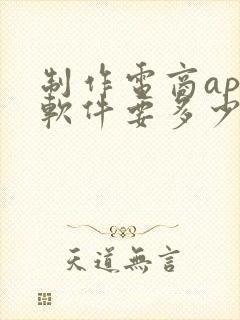 制作电商ap
軟件要多少
天道無言